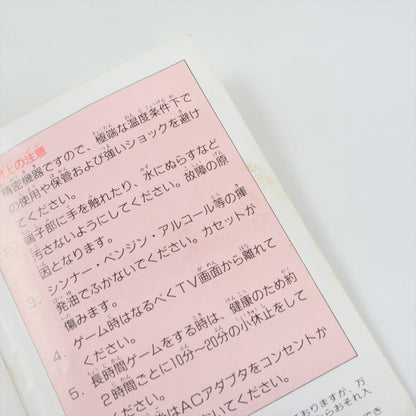 上の注意
精密機器ですので、極端な温度条件下で
の使用や保管および強いショックを避け
てください。
2. 端子部に手を触れたり、水にぬらすなど
汚さないようにしてください。故障の原
因となります。
3. シンナー・ベンジン・アルコール等の揮
発油でふかないでください。カセットが
傷みます。
4. ゲーム時はなるべくTV画面から離れて
ください。
5. 長時間ゲームをする時は、健康のため約
2時間ごとに10分〜20分の小休止をして
ください。
はACアダプタをコンセントか
ください。
おりますが、万